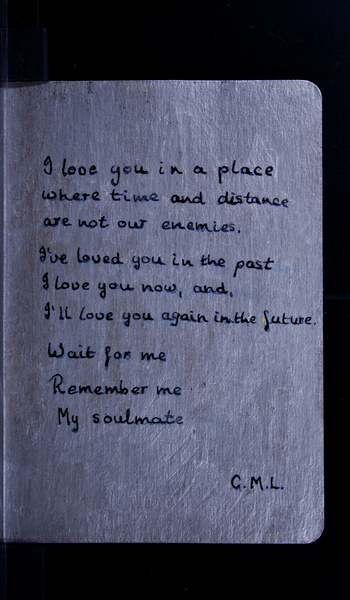 I love you in a place
where time and distance
are not our enemies.
I've loved you in the past
I love you now, and,
I'll love you again in the future.
Wait for me
Remember me
My soulmate
C.M.L.